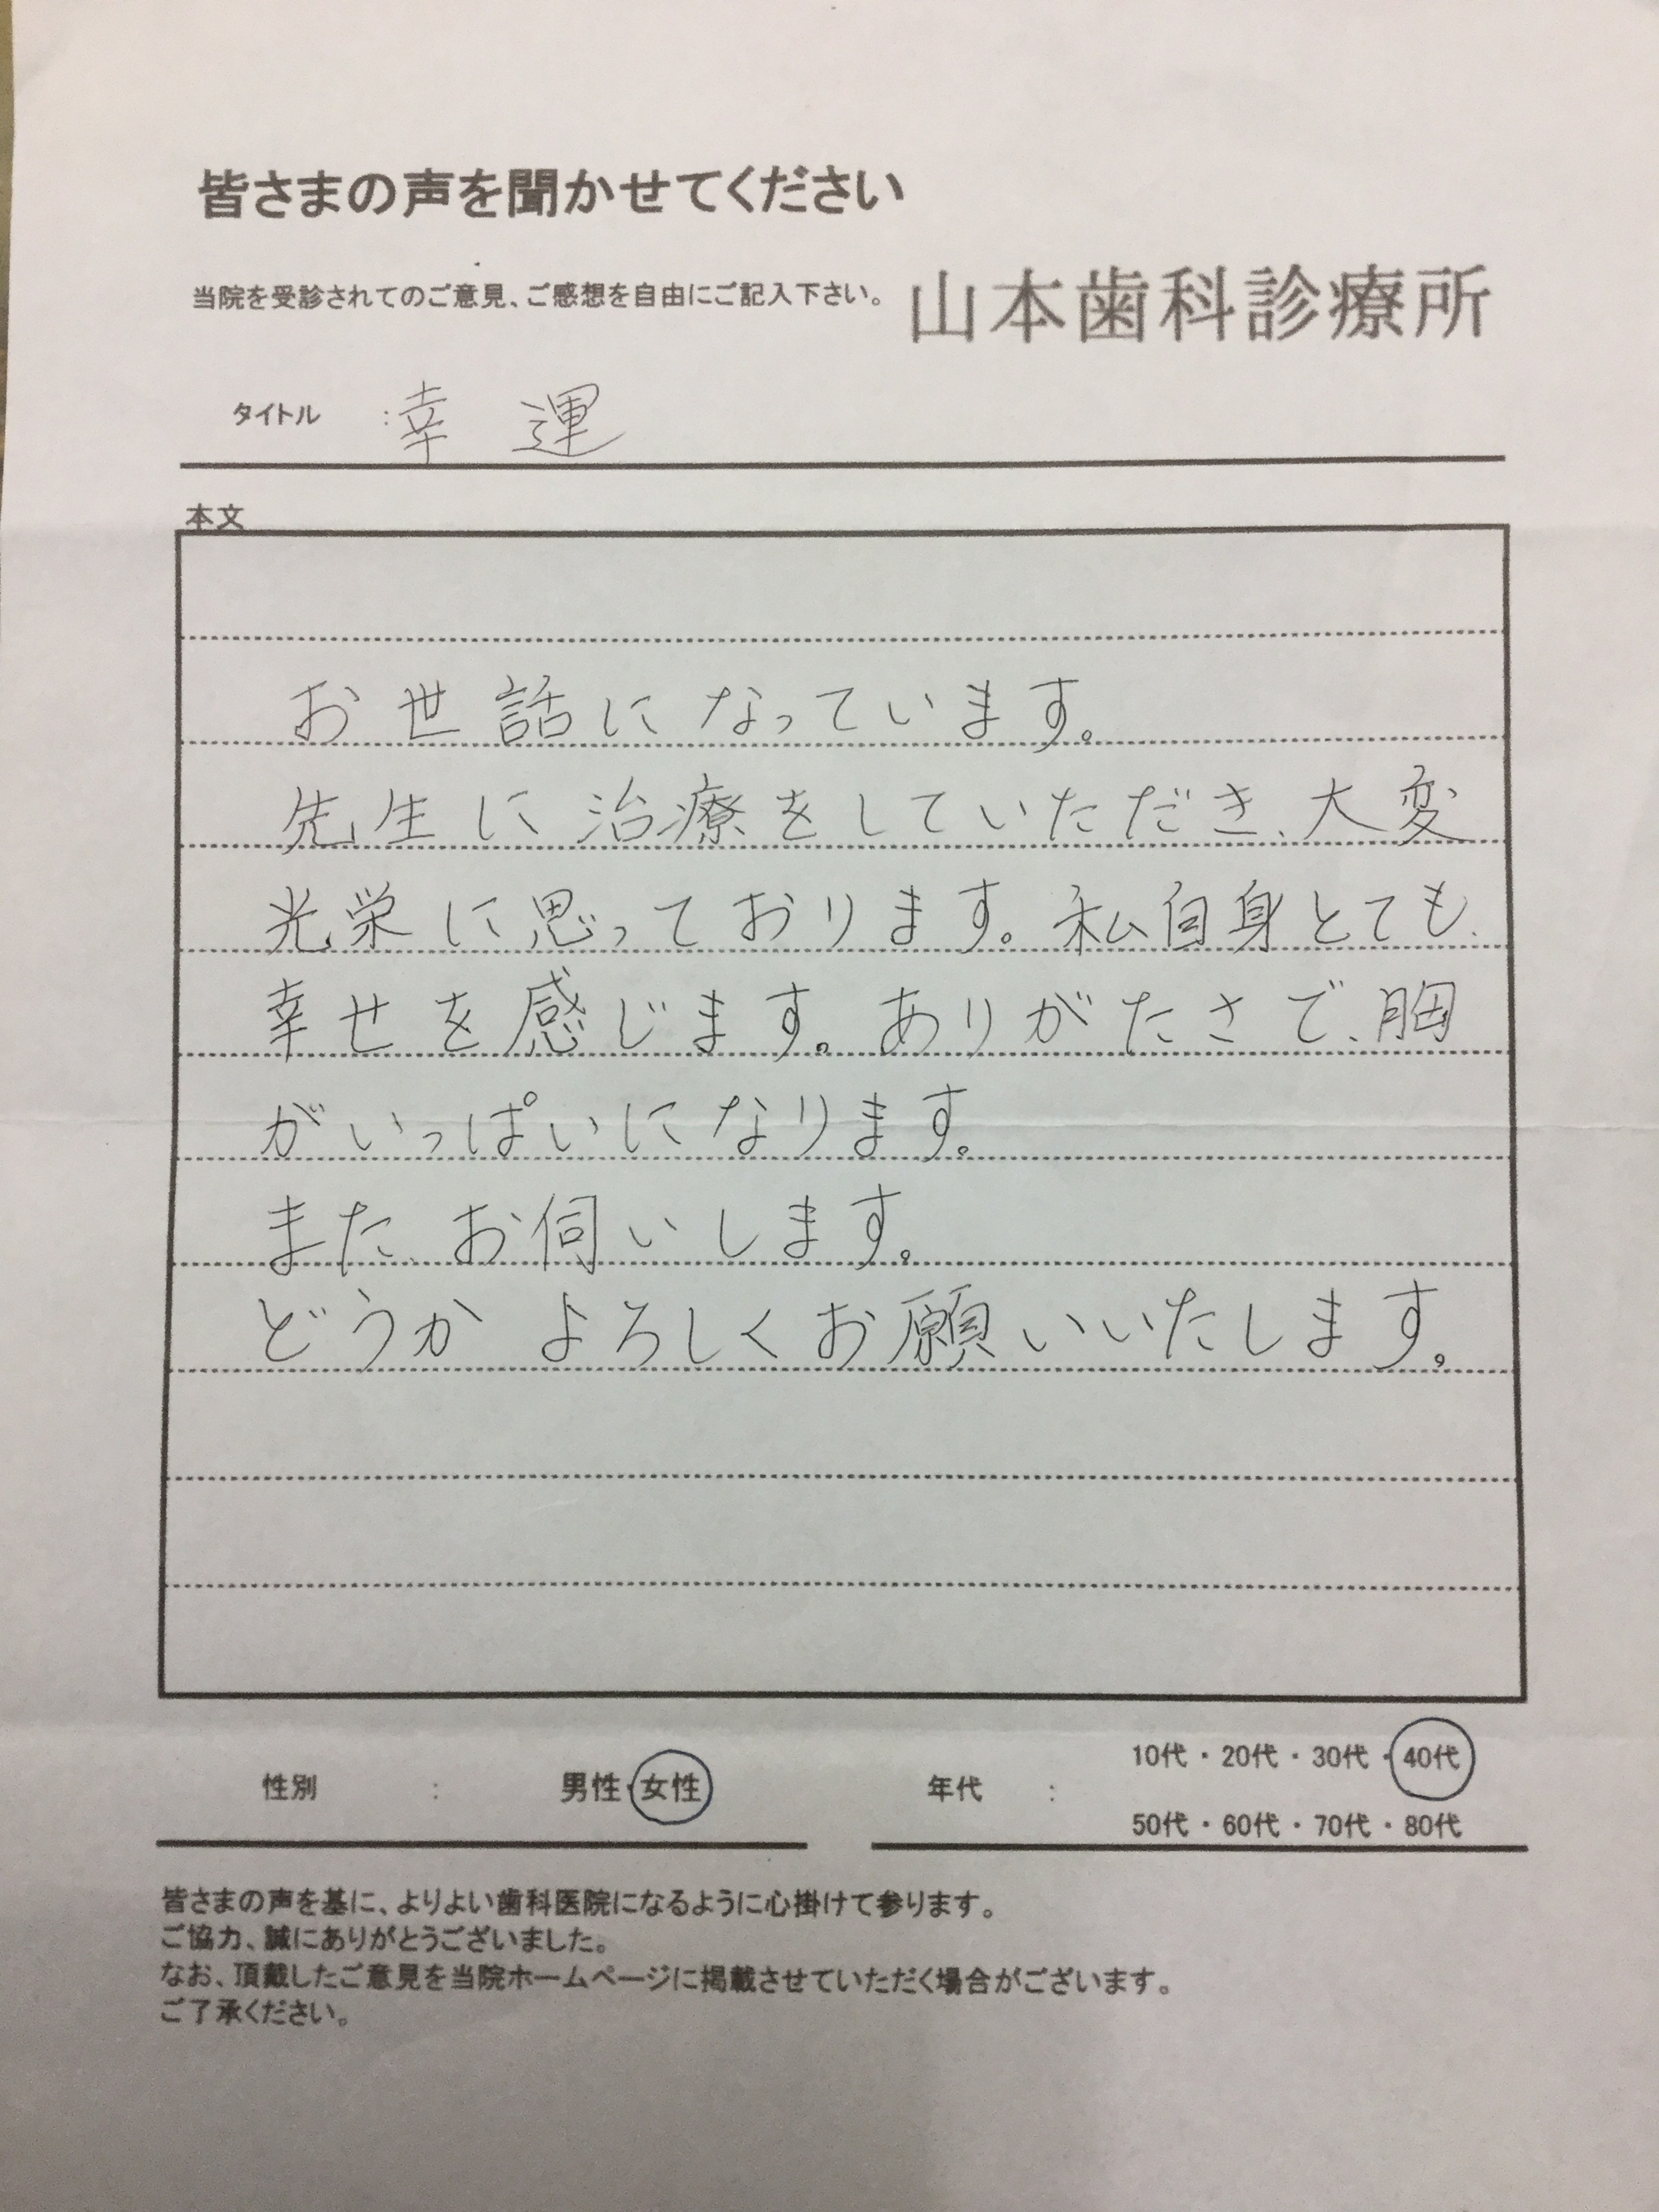 皆さまの声を聞かせてください
当院を受診されてのご意見、ご感想を自由にご記入下さい。
山本歯科診療所
タイトル :幸 運
本文
お世話になっています。
先生に治療をしていただき、大変
光栄に思っております。私自身とても、
幸せを感じます。ありがたさで、胸
がいっぱいになります。
また、お伺いします。
どうか よろしくお願いいたします。
性別 : 男性・女性
年代 : 10代・20代・30代・40代
50代・60代・70代・80代
皆さまの声を基に、よりよい歯科医院になるように心掛けて参ります。
ご協力、誠にありがとうございました。
なお、頂戴したご意見を当院ホームページに掲載させていただく場合がございます。
ご了承ください。